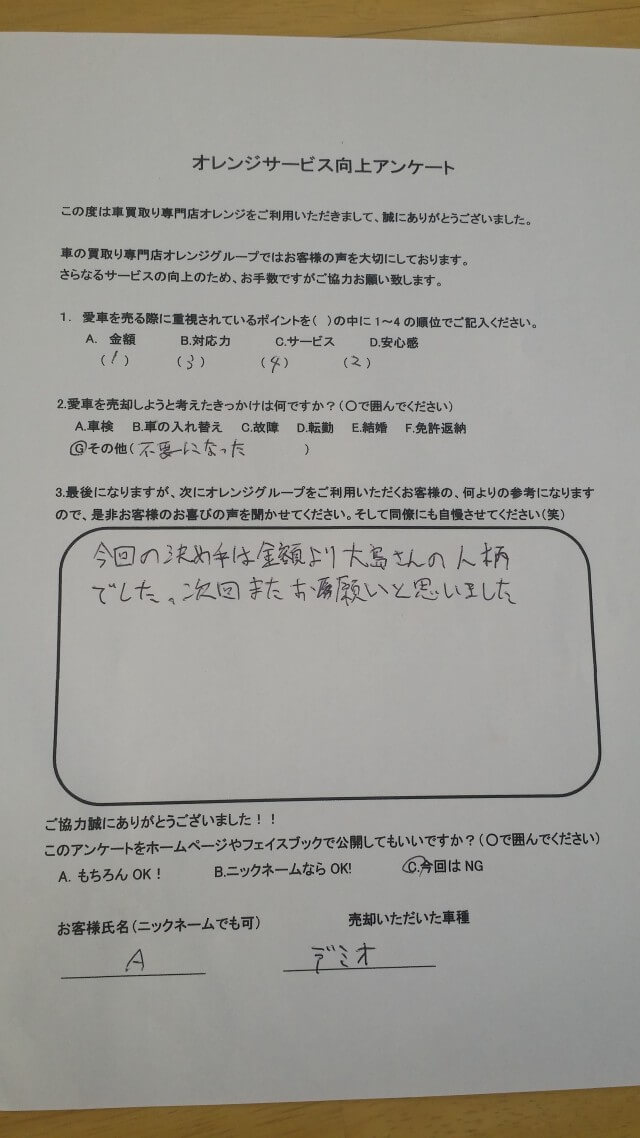 オレンジサービス向上アンケート
この度は車買取り専門店オレンジをご利用いただきまして、誠にありがとうございました。
車の買取り専門店オレンジグループではお客様の声を大切にしております。
さらなるサービスの向上のため、お手数ですがご協力お願い致します。
1. 愛車を売る際に重視されているポイントを( )の中に1～4の順位でご記入ください。
A. 金額 B.対応力 C.サービス D.安心感
(1) (3) (4) (2)
2.愛車を売却しようと考えたきっかけは何ですか？(〇で囲んでください)
A.車検 B.車の入れ替え C.故障 D.転勤 E.結婚 F.免許返納
G その他(不要になった )
3.最後になりますが、次にオレンジグループをご利用いただくお客様の、何よりの参考になります
ので、是非お客様のお喜びの声を聞かせてください。そして同僚にも自慢させてください(笑)
今回の決め手は金額より大島さんの人柄
でした。次回またお願いと思いました
ご協力誠にありがとうございました！！
このアンケートをホームページやフェイスブックで公開してもいいですか？(〇で囲んでください)
A. もちろんOK！ B.ニックネームならOK! C.今回はNG
お客様氏名(ニックネームでも可) 売却いただいた車種
A デミオ